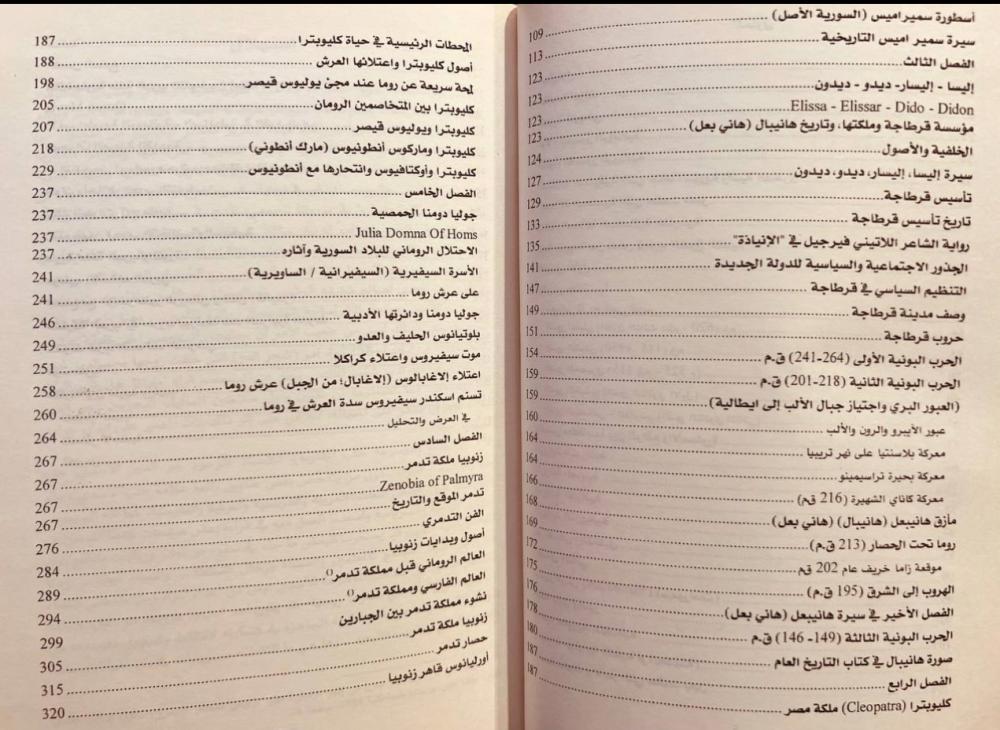 أسطورة سميراميس (السورية الأصل) ..... 109
سيرة سمير اميس التاريخية ..... 113
الفصل الثالث ..... 123
إليسا - إليسار- ديدو - ديدون ..... 123
Elissa - Elissar - Dido - Didon ..... 123
مؤسسة قرطاجة وملكتها، وتاريخ هانيبال (هاني بعل) ..... 123
الخلفية والأصول ..... 124
سيرة إليسا، إليسار، ديدو، ديدون ..... 127
تأسيس قرطاجة ..... 129
تاريخ تأسيس قرطاجة ..... 133
رواية الشاعر اللاتيني فيرجيل في "الإنياذة" ..... 135
الجذور الاجتماعية والسياسية للدولة الجديدة ..... 141
التنظيم السياسي في قرطاجة ..... 147
وصف مدينة قرطاجة ..... 149
حروب قرطاجة ..... 151
الحرب البونية الأولى (264-241) ق.م ..... 154
الحرب البونية الثانية (218-201) ق.م ..... 159
(العبور البري واجتياز جبال الألب إلى ايطالية) ..... 159
عبور الأيبرو والرون والألب ..... 160
معركة بلاسنتيا على نهر تريبيا ..... 164
معركة بحيرة تراسيمينو ..... 164
معركة كاناي الشهيرة (216 ق.م) ..... 166
مأزق هانيبعل (هانيبال) (هاني بعل) ..... 168
روما تحت الحصار (213 ق.م) ..... 169
موقعة زاما خريف عام 202 ق.م ..... 172
الهروب إلى الشرق (195 ق.م) ..... 175
الفصل الأخير في سيرة هانيبعل (هاني بعل) ..... 176
الحرب البونية الثالثة (149- 146) ق.م ..... 178
صورة هانيبال في كتاب التاريخ العام ..... 180
الفصل الرابع ..... 187
كليوبترا (Cleopatra) ملكة مصر ..... 187
المحطات الرئيسية في حياة كليوبترا ..... 187
أصول كليوبترا واعتلائها العرش ..... 188
لمحة سريعة عن روما عند مجئ يوليوس قيصر ..... 198
كليوبترا بين المتخاصمين الرومان ..... 205
كليوبترا ويوليوس قيصر ..... 207
كليوبترا وماركوس أنطونيوس (مارك أنطوني) ..... 218
كليوبترا وأوكتافيوس وانتحارها مع أنطونيوس ..... 229
الفصل الخامس ..... 237
جوليا دومنا الحمصية ..... 237
Julia Domna Of Homs ..... 237
الاحتلال الروماني للبلاد السورية وآثاره ..... 237
الأسرة السيفيرية (السيفيرانية / الساويرية) ..... 241
على عرش روما ..... 241
جوليا دومنا ودائرتها الأدبية ..... 246
بلوتيانوس الحليف والعدو ..... 249
موت سيفيروس واعتلاء كراكلا ..... 251
اعتلاء إلاغابالوس (إلاغابال؛ من الجبل) عرش روما ..... 258
تسنم اسكندر سيفيروس سدة العرش في روما ..... 260
في العرض والتحليل ..... 264
الفصل السادس ..... 267
زنوبيا ملكة تدمر ..... 267
Zenobia of Palmyra ..... 267
تدمر الموقع والتاريخ ..... 267
الفن التدمري ..... 276
أصول وبدايات زنوبيا ..... 284
العالم الروماني قبل مملكة تدمر() ..... 289
العالم الفارسي ومملكة تدمر() ..... 294
نشوء مملكة تدمر بين الجبارين ..... 299
زنوبيا ملكة تدمر ..... 305
حصار تدمر ..... 315
أورليانوس قاهر زنوبيا ..... 320